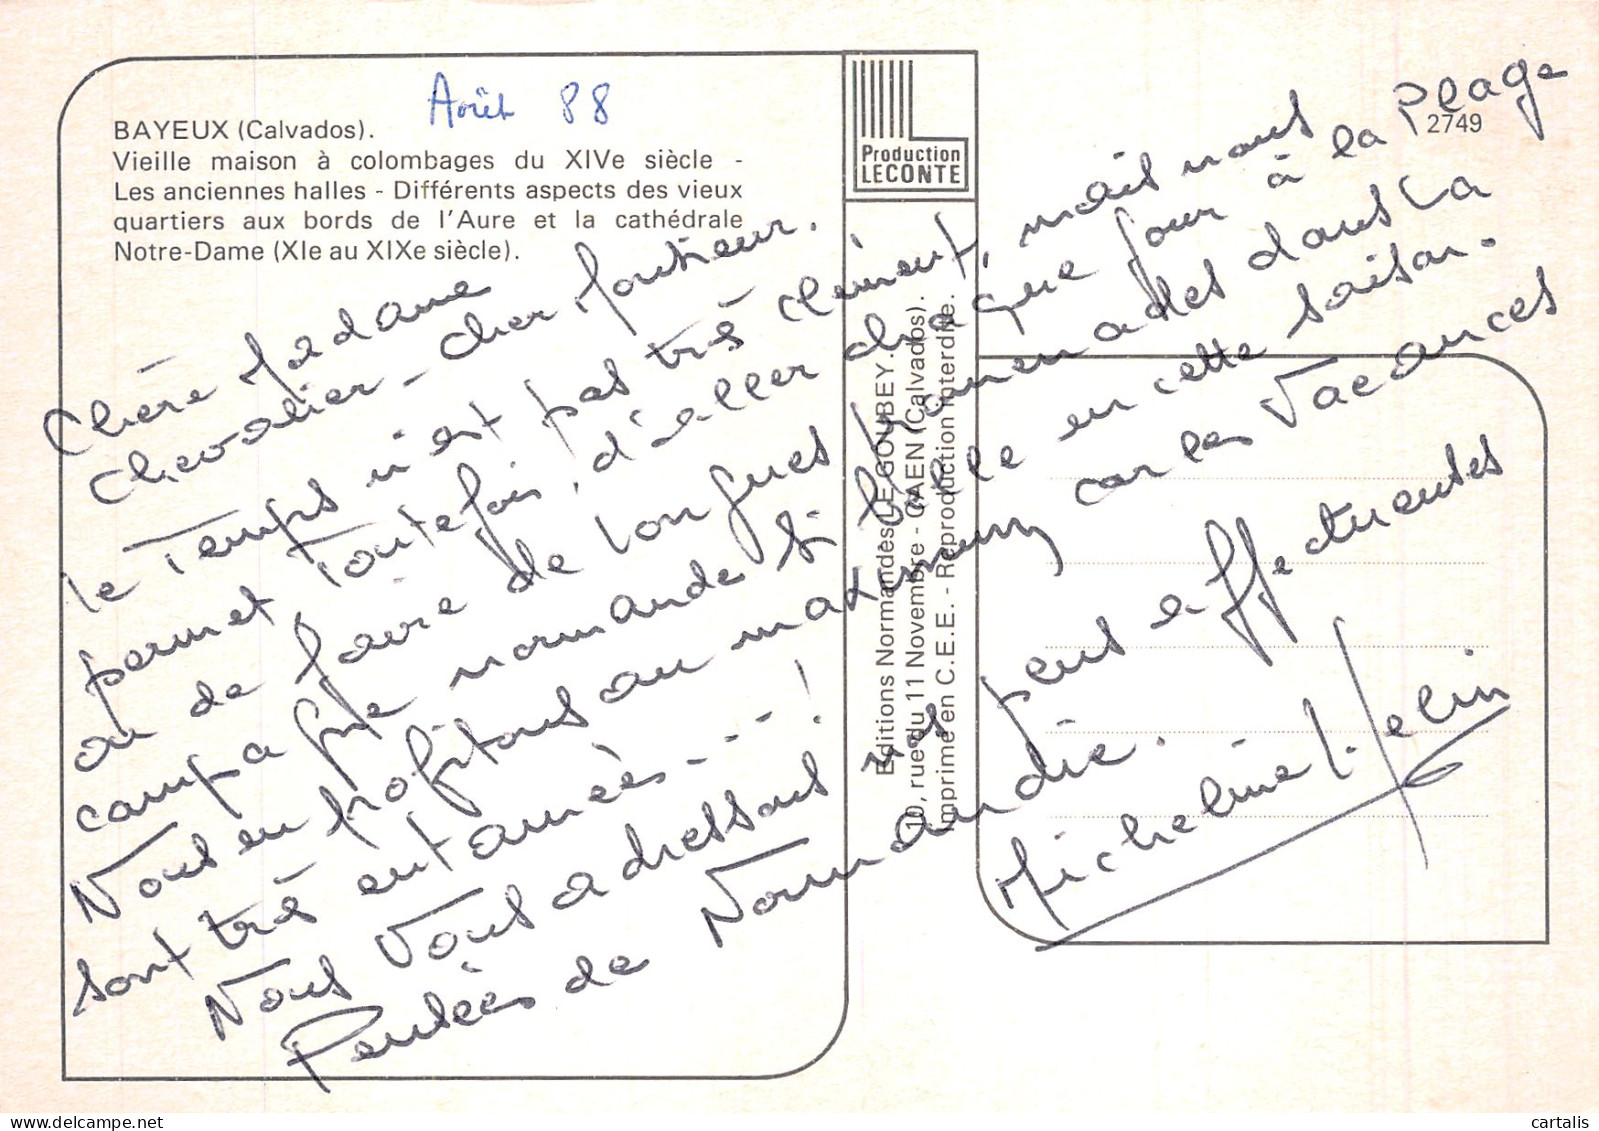 Août 88
BAYEUX (Calvados).
Vieille maison à colombages du XIVe siècle -
Les anciennes halles - Différents aspects des vieux
quartiers aux bords de l'Aure et la cathédrale
Notre-Dame (XIe au XIXe siècle).
Production
LECONTE
2749
Chère Madame
Chevalier - cher Monsieur.
le Temps n'est pas très clément, mais nous
permet Toutefois, d'aller chaque jour à la Plage
ou de faire de longues promenades dans la
campagne normande si belle en cette saison.
Nous en profitons au maximum car les Vacances
sont très entamées - - !
Nous Vous adressons nos plus affectueuses
Pensées de Normandie.
Micheline
Editions Normandes LE GOUBEY.
10, rue du 11 Novembre - CAEN (Calvados).
Imprimé en C.E.E. - Reproduction interdite.
cartalis